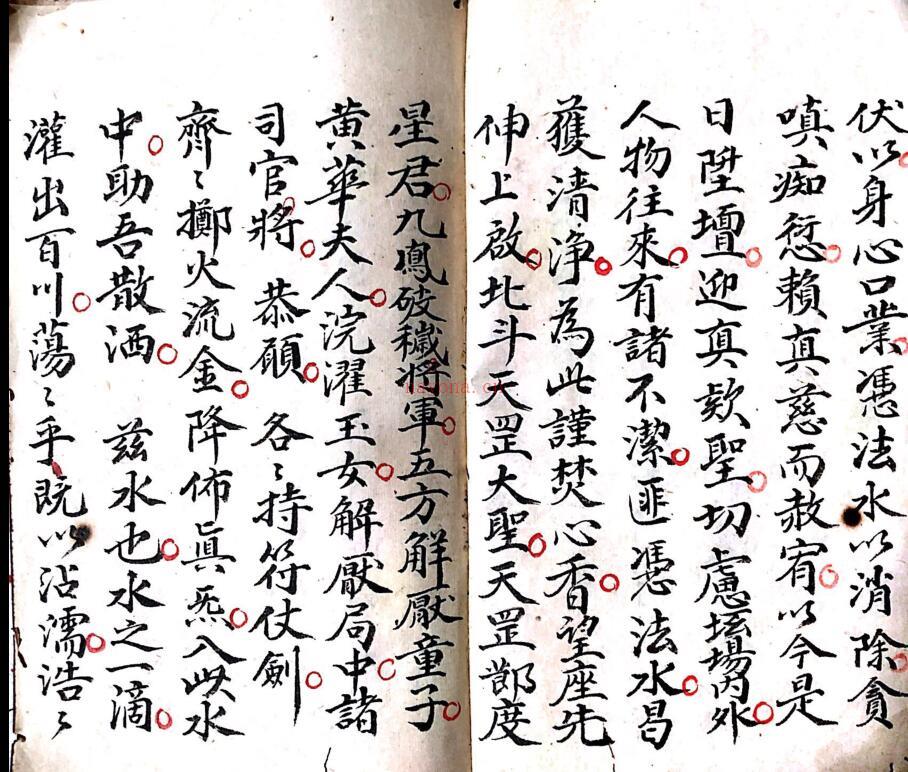 伏以身心口業憑法水以消除貪
嗔痴愆賴真慈而赦宥以今是
日陞壇迎真欵聖切慮壇場內外
人物往來有諸不潔匪憑法水曷
獲清淨為此謹焚心香望座先
伸上啟北斗天罡大聖天罡節度
星君九鳳破穢將軍五方解厭童子
黄華夫人浣濯玉女解厭局中諸
司官將 恭願 各〻持符仗劍
齊〻擲火流金降佈真炁入此水
中助吾散洒 茲水也水之一滴
灌出百川蕩〻乎既以沾濡浩〻